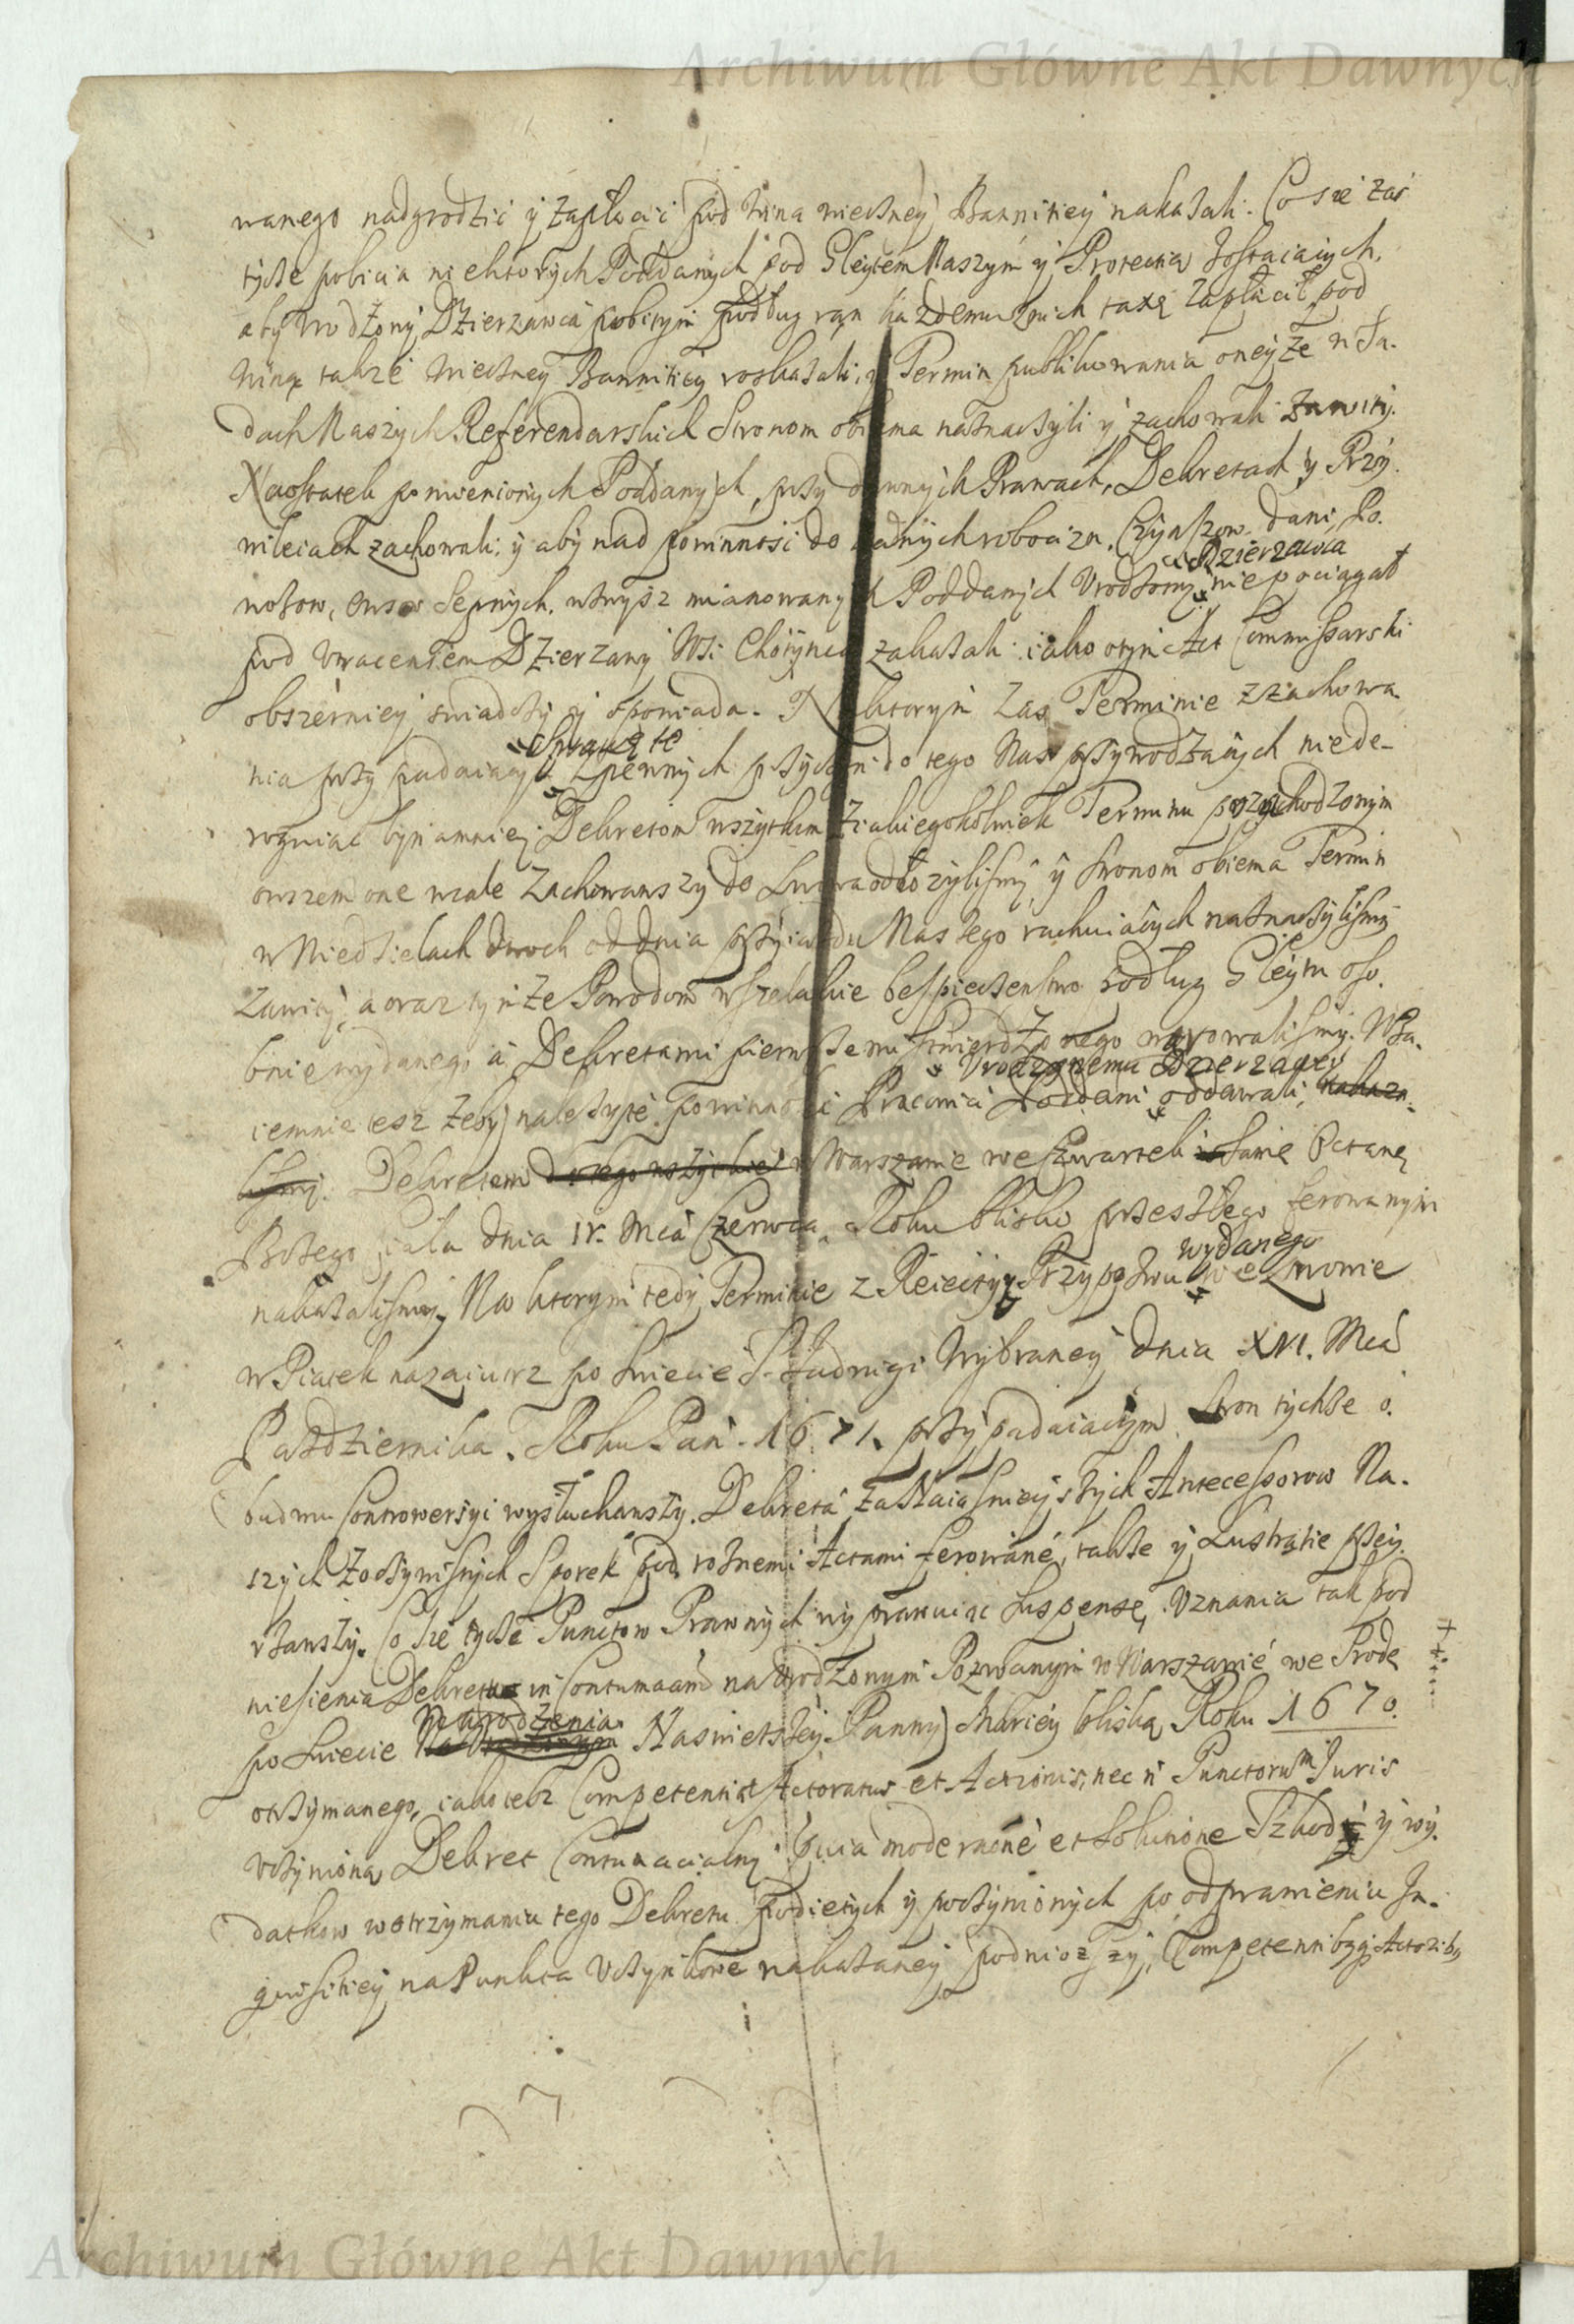 Archiwum Główne Akt Dawnych
wanego nadgrodzić y zapłacić pod wina wieczney Bannitiey nakazali. Co sie zaś
tycze pobicia niektorych Poddanych pod Gleytem Naszym y Protectią zostaiących,
aby Vrodzony Dzierzawca pobitym podług ran każdemu znich taxę zapłacił pod
winą także wieczney Bannitiey roskazali, y Termin publikowania oneyże w Są-
dach Naszych Referendarskich Stronom obiema naznaczyli y zachowali zawity.
Naostatek pomienionych Poddanych, przy dawnych Prawach, Dekretach y Przy-
wileiach zachowali, y aby nad powinność do żadnych robocizn, Czynszow, dani, Po-
Dzierzawca
wozow, owsow Sepnych, wzwysz mianowanych Poddanych Vrodzony niepociągał
pod vtraceniem Dzierzawy Wsi Chotyniec zakazali iako otym Act Commissarski
obszerniey swiadczy y opowiada. Na ktorym Zas Terminie zzachowa
Sprawę te
nia przy padaiącym Zpewnych przyczyn do tego Nas przywodzących niede-
roguiąc bynamniey Dekretom wszytkim ziakiegokolwiek Terminu pozachodzonym
owszem one wcale Zachowawszy do Lwowa odłożylismy, y Stronom obiema Termin
w Niedzielach dwoch od dnia przyiazdu Naszego rachuiących naznaczylismy
Zawity, a oraz tymże Powodom wszelakie bespieczenstwo podług Gleytu oso-
bnie wydanego á Dekretami pierwszemi stwierdzonego warowalismy. Wza-
Vrodzonemu Dzierzawcy
iemnie tesz żeby należyte powinności Pracowici Poddani oddawali, nakaza-
lismy. Dekretem do tego wszytkie w Warszawie we Czwartek Oktawę
Bożego Ciała dnia IV. Mca Czerwca, Roku blisko przeszłego ferowanym
wydanego
nakazalismy. Na ktorym tedy Terminie z Reiectyy Przypozwu we Lwowie
w Piątek nazaiutrz po Swięcie S. Jadwigi Wybraney dnia XVI. Mca
Pazdziernika. Roku Pan. 1671. przypadaiącym Stron tychże o-
budwu Controwersyi wysłuchawszy. Dekreta za Naiasnieyszych Antecessorow Na-
szych Zoczywisnych Sporek pod rożnemi Actami ferowane, także y Lustratie przey-
rzawszy. Co sie tycze Punctow Prawnych wyprawuiąc suspensę, Vznania tak pod
niesienia Dekretu in Contumaciam na Vrodzonym Pozwanym w Warszawie we Srodę
Nagrodzenia
po Swięcie Na Naswietszey Panny Mariey bliską Roku 1670.
otrzymanego, iako tesz Competentiae Actoratus et Actionis, nec n Punctorum Juris
vczynioną Dekret Contumacialny quia moderatione et solutione Szkod y wy-
datkow wotrzymaniu tego Dekretu podiętych y poczynionych po odprawieniu In-
quisitiey na Punkta Vczynkowe nakazaney podniozszy, Competentibg Actorib
Archiwum Główne Akt Dawnych